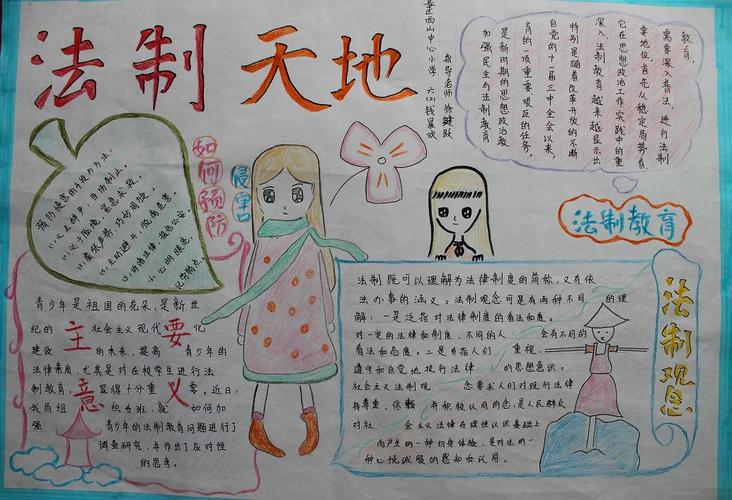 法制天地
莲西山中心小学 六(2)钱景欢
指导老师 徐健跃
教育
需要深入普法，进行法制
要地位。首先从稳定局势看，
它在思想政治工作实践中的重
深入，法制教育越来越显示出
特别是随着改革开放的不断
自党的十一届三中全会以来，
育的一项重要艰巨的任务。
是新时期的思想政治教
加强民主与法制教育
法制教育
如何预防
侵害
预防侵害的手段与方法：
⑴义正辞严，当场制止。
⑵处于险境，紧急求救。
⑶虚张声势，巧妙周旋
⑷主动避开，脱离危害。
⑸诉诸法律，报告公安。
⑹心明眼亮，
记牢特点。
青少年是祖国的花朵，是新世
纪的 主 社会主义现代 要 化
建设 的未来，提高 青少年的
法律素质，尤其是对在校学生进行法
制教育， 意 显得十分重 义 要。近日，
我自组 织为班，就 如何加
强 青少年的法制教育问题进行了
调查研究，并作出了应对性
的思考。
法制既可以理解为法律制度的简称，又有依
法办事的涵义。法制观念可是有两种不同 的理
解：一是泛指对法律制度的看法和态度。
对一定的法律和制度，不同的人 会有不同的
看法和态度。二是专指人们 重视、
遵守和自觉地执行法律 的思想意识。
社会主义法制观 念要求人们对现行法律
持尊重、信赖 并积极认同的态，是人民群众
对社 会主义法律在理性认识基础上
而产生的一种切身体验，是对法的一
种心悦诚服的感知和认同。
法制观念